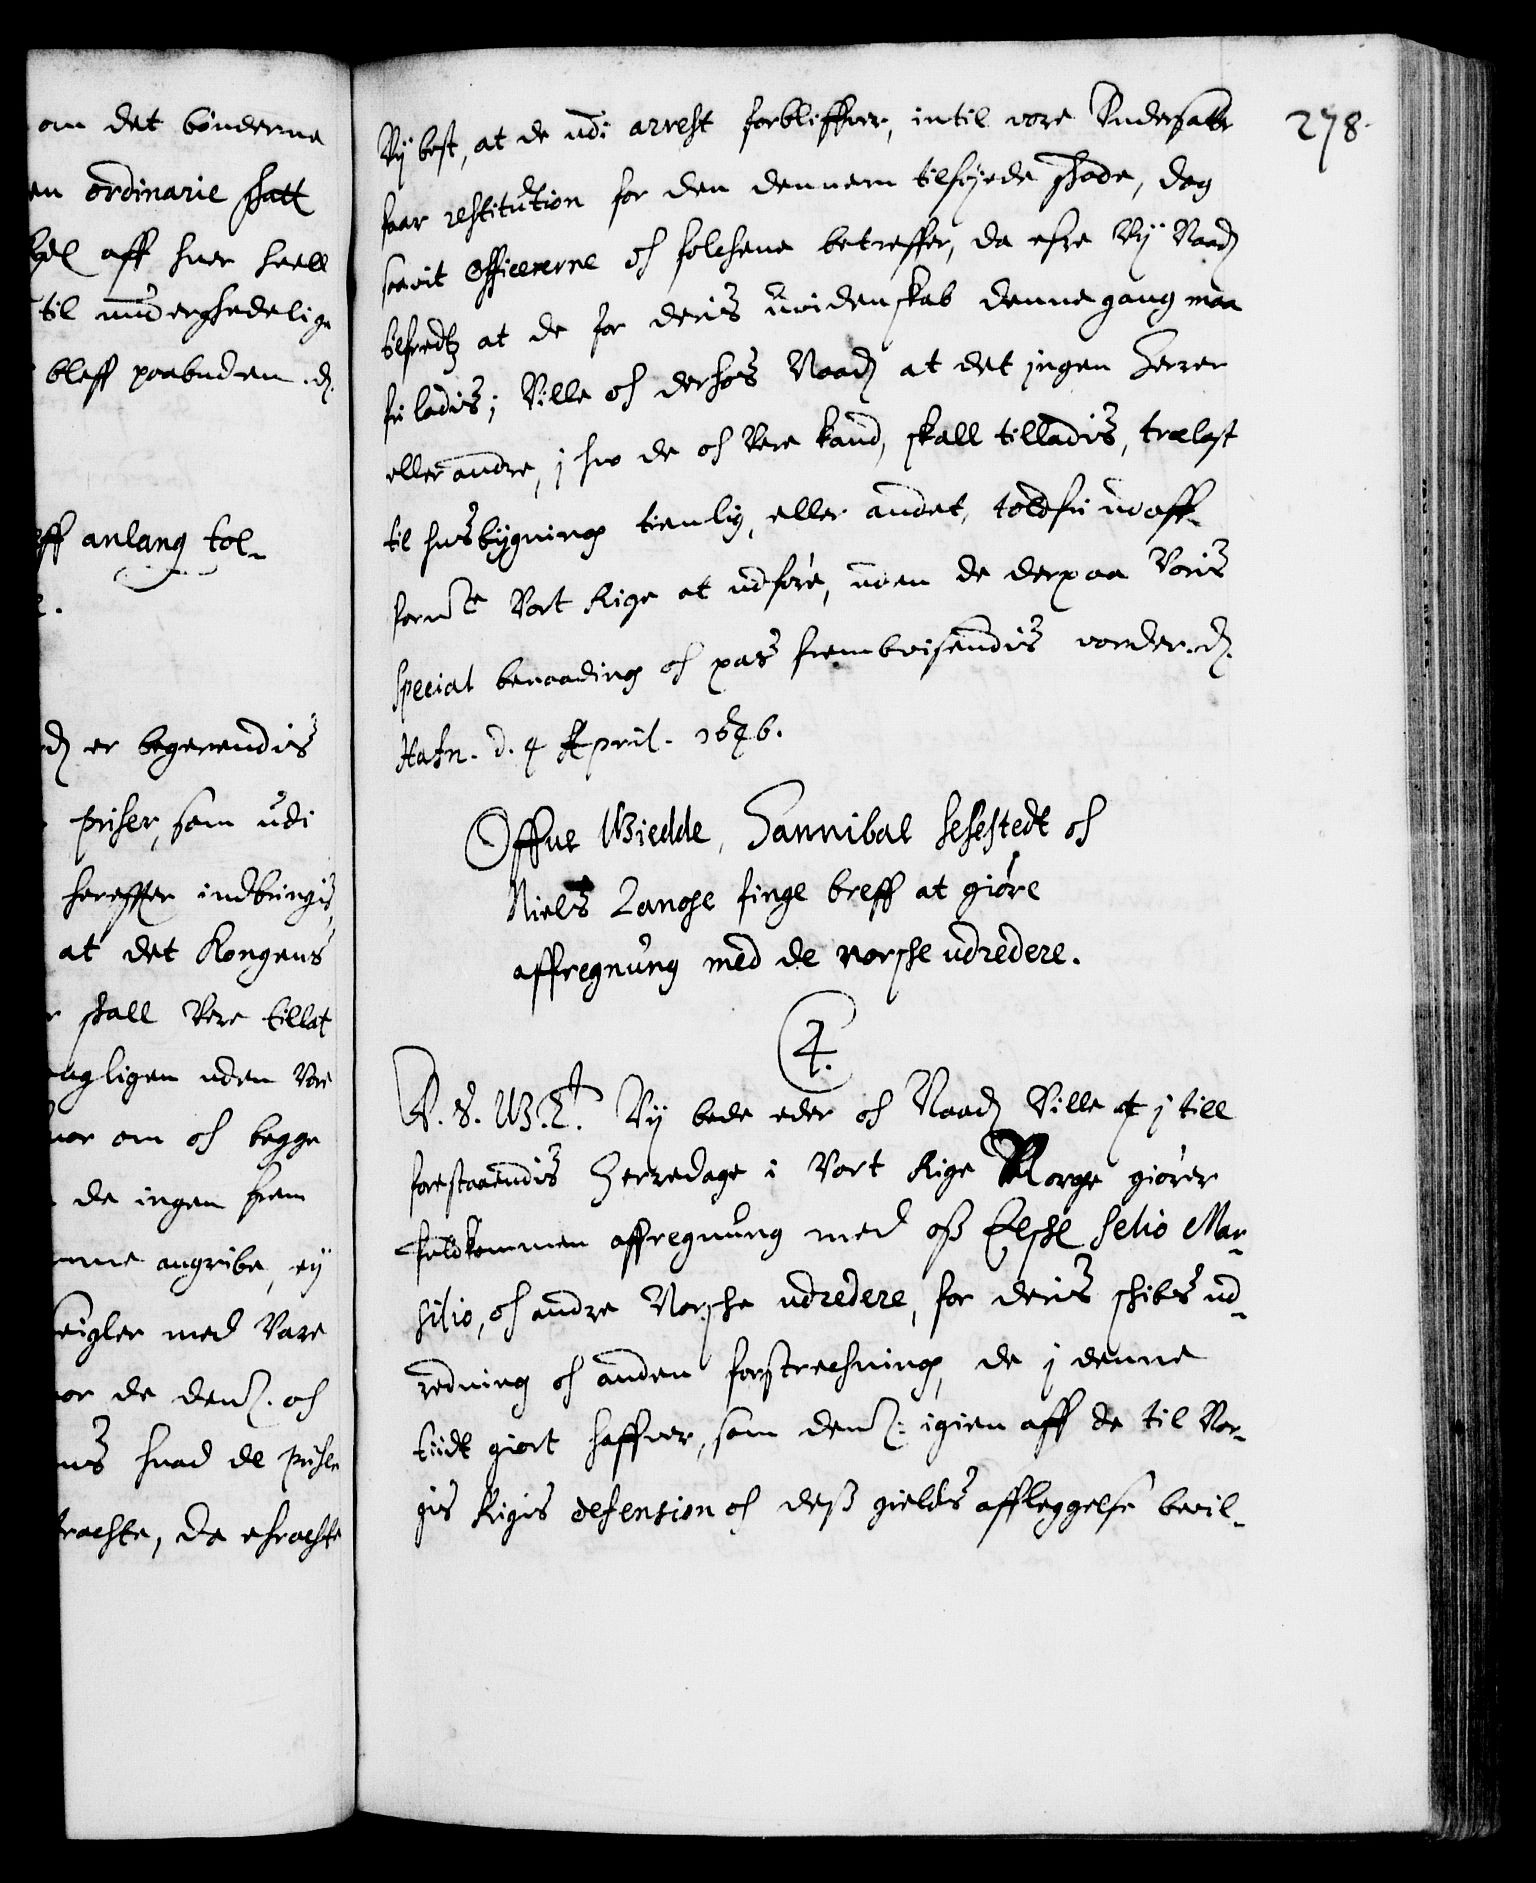 om det bønderne
en ordinarie skatt
aff huer heell
til underskedelige
bleff paabuden. d.
eff anlang tol-
er begerendis
priser, som udi
hereffter indbringis,
at det Kongens
skall Vere tillat
uden Vore
om och begge
de ingen frem
angribe, eÿ
med Vare
de denn. och
huad de prise
da
278.
Vÿ best, at de udi arrest forbliffver, intil vore Undersatte
faar restitution for den dennem tilføyede skade, dog
saavit Officererne och folchene betreffer, da ehre Vÿ Naadl
tilfredtz at de for deris uvidenskab denne gang maa
fri ladis; Ville och derhos Naadl at det ingen Herrer
eller andre, j hvo de och Vere kand, skall tilladis, trælast
til husbÿgning tienlig, eller andet, toldfri uaff
formte Vort Rige at udføre, uden de derpaa Voris
special benaading och pas frembvisendis vorder. d.
Hafn. d. 4 April. 1646.
Offue Giedde, Hannibal Sehestedt och
Niels Lange finge breff at giøre
affregnung med de norske udredere.
4.
C. 4. W. G. t. Vÿ bede eder och Naadl Ville at j till
forestaaendis Herredage i Vort Rige Norge giører
fuldkommen affregnung med oss Elskel Selio Mar-
silio, och andre Norske udredere, for deris skibs ud-
redning och anden forstrechning, de j denne
tiidt giort haffver, som denn: igien aff de til Nor-
gis Rigis defension och dess gields affleggelse bevil-